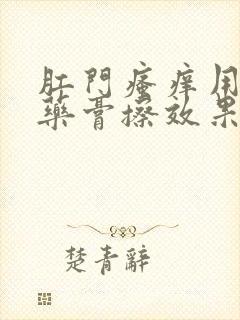 肛門瘙癢用
藥膏擦效果
楚青辭